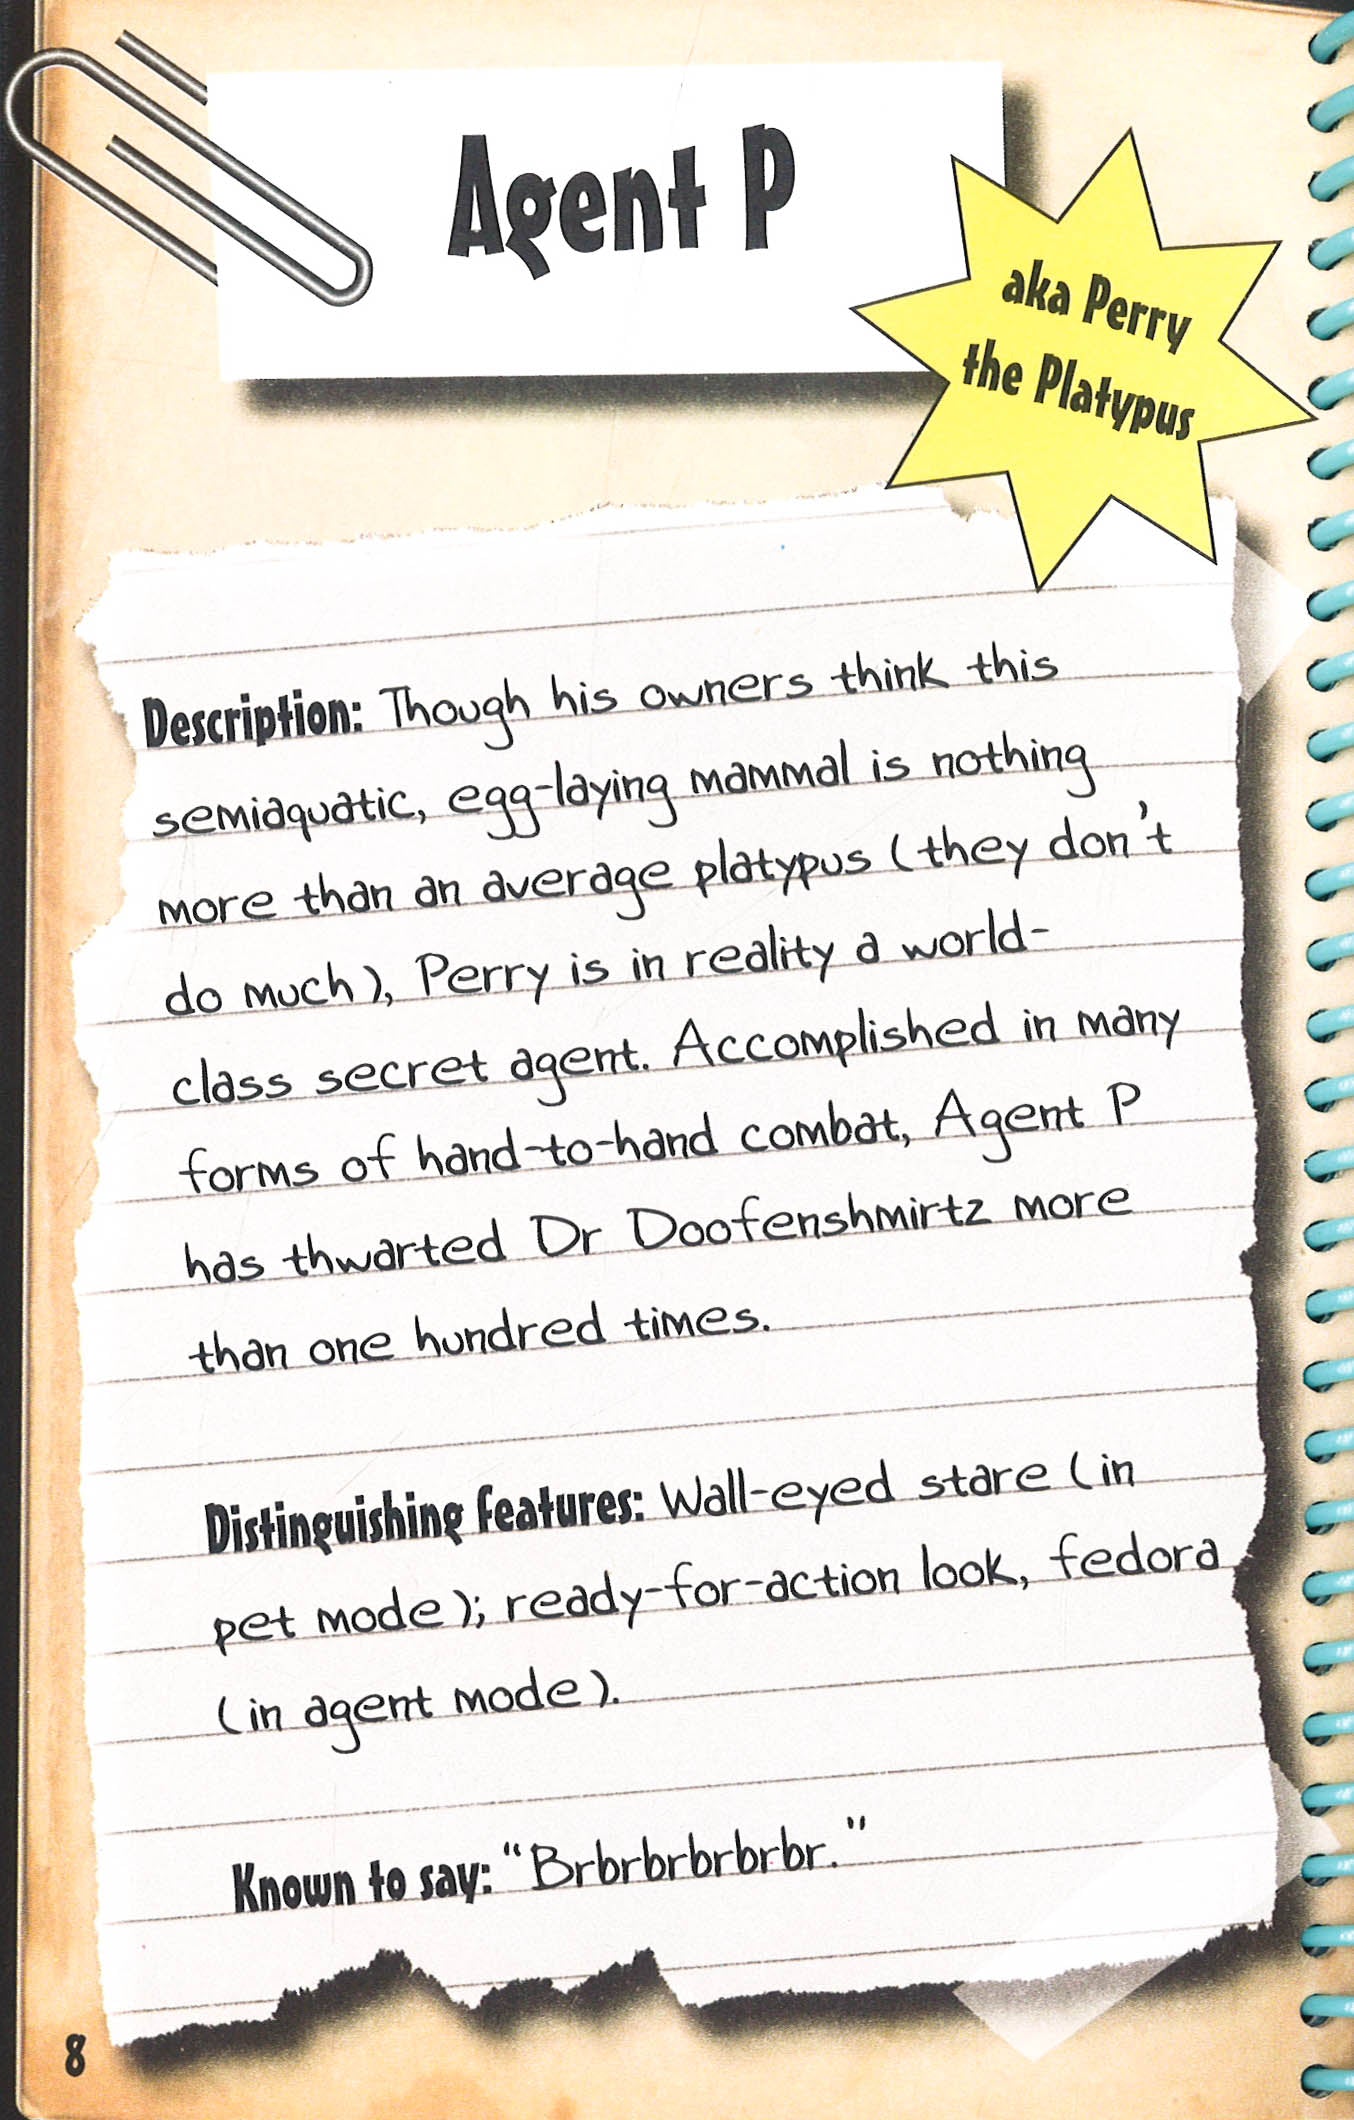 Agent P
aka Perry
the Platypus
Description: Though his owners think this
semiaquatic, egg-laying mammal is nothing
more than an average platypus (they don't
do much), Perry is in reality a world-
class secret agent. Accomplished in many
forms of hand-to-hand combat, Agent P
has thwarted Dr Doofenshmirtz more
than one hundred times.
Distinguishing features: Wall-eyed stare (in
pet mode); ready-for-action look, fedora
(in agent mode).
Known to say: "Brbrbrbrbrbr."
8